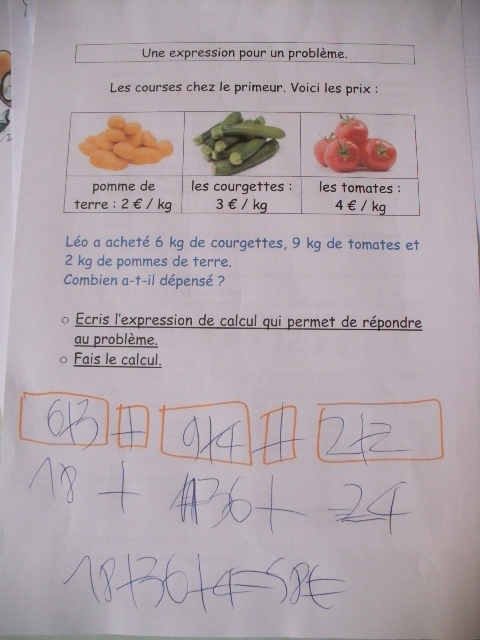 Une expression pour un problème.
Les courses chez le primeur. Voici les prix :
pomme de terre : 2 € / kg
les courgettes : 3 € / kg
les tomates : 4 € / kg
Léo a acheté 6 kg de courgettes, 9 kg de tomates et
2 kg de pommes de terre.
Combien a-t-il dépensé ?
○ Ecris l'expression de calcul qui permet de répondre
au problème.
○ Fais le calcul.
6x3 + 9x4 + 2x2
18 + 36 + 4
18+36+4=58€